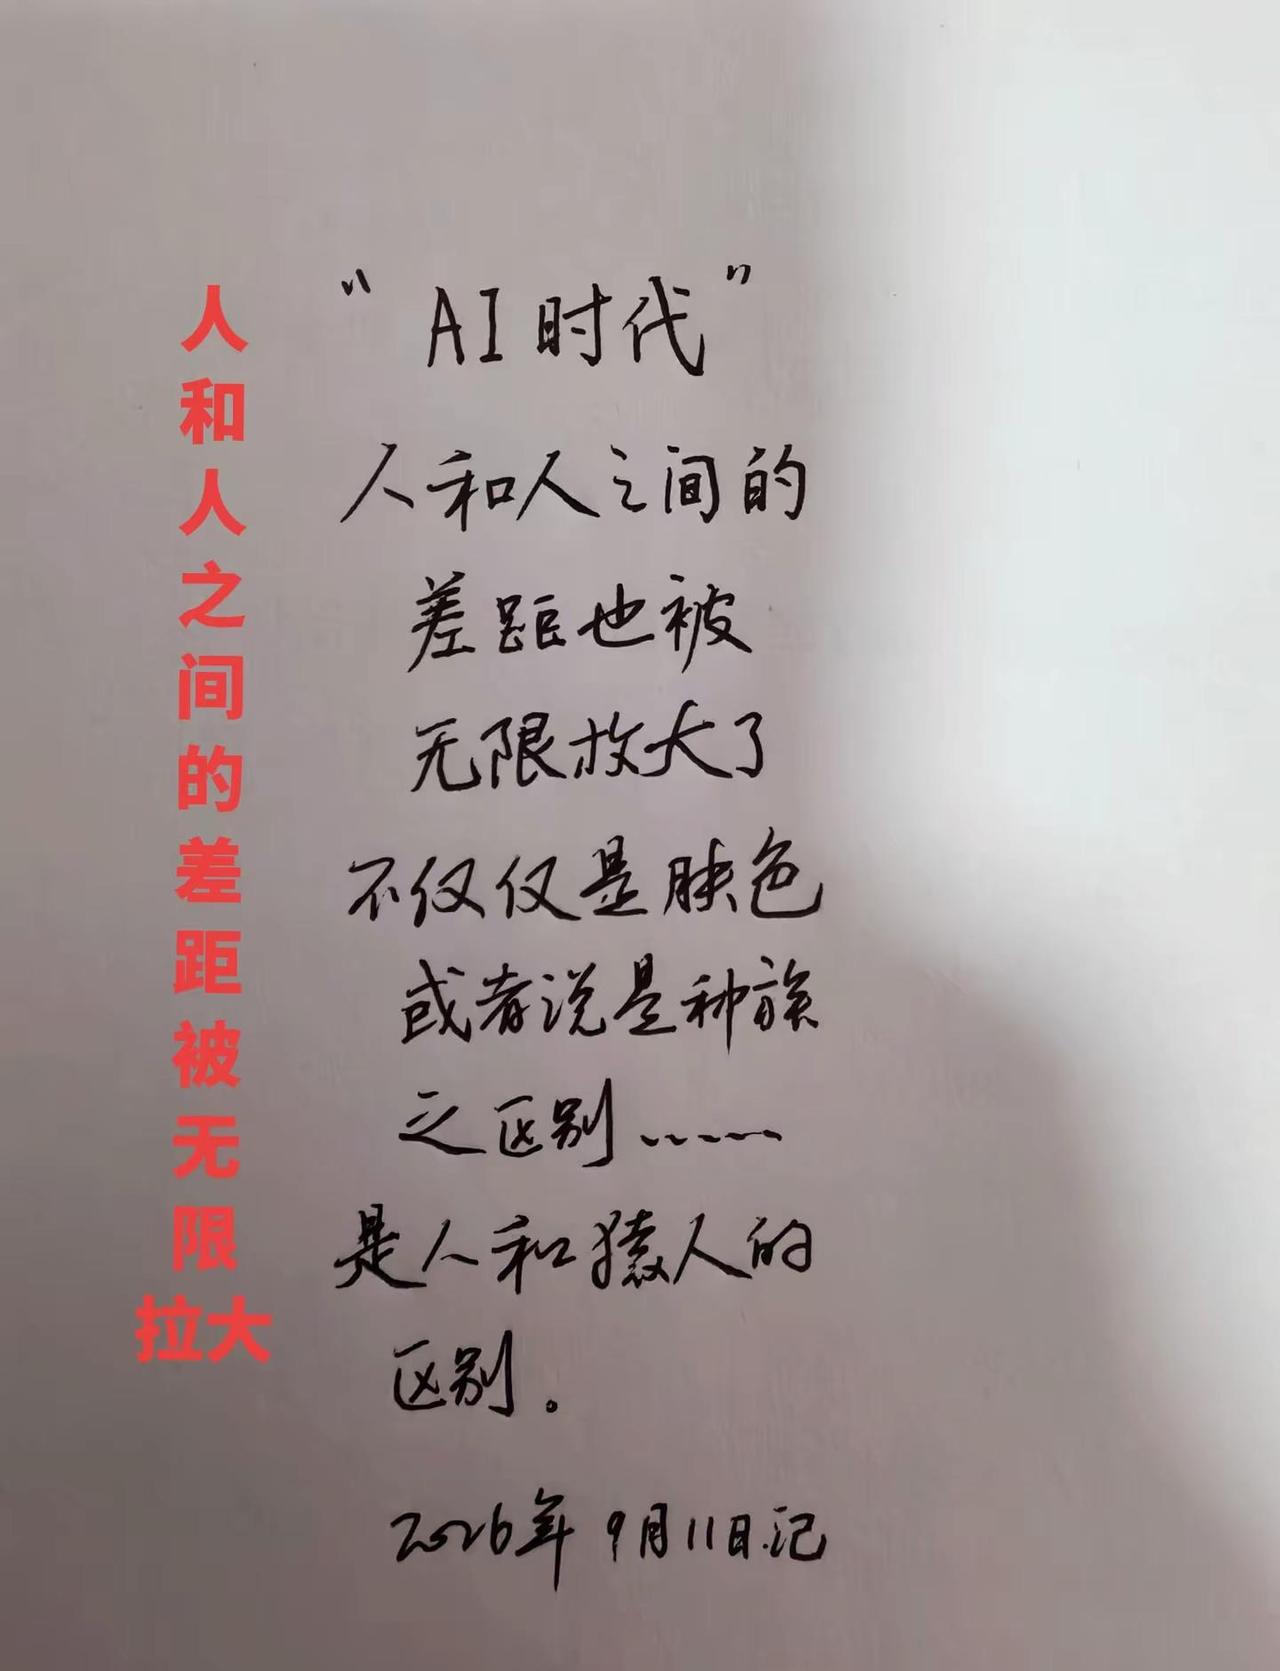 人和人之间的差距被无限拉大
“AI时代”
人和人之间的
差距也被
无限放大了
不仅仅是肤色
或者说是种族
之区别……
是人和猿人的
区别。
2026年9月11日.记